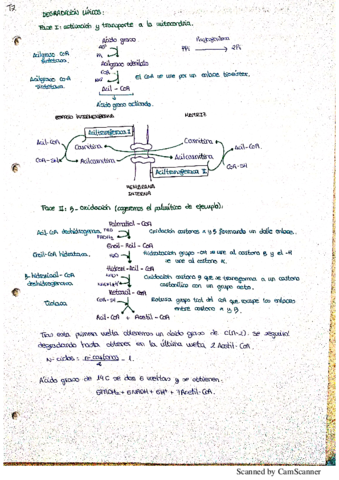 T2
DEGRADACIÓN LÍPIDOS:
Fase I: activación y transporte a la mitocondria.
Ácido graso
Pirofosfatasa
ATP
PPi → 2Pi
Acilgraso CoA
Sintetasa.
Acilgraso adenilato
CoA-SH
El CoA se une por un enlace tioéster.
Acilgraso CoA
Sintetasa.
Acil-CoA
Ácido graso activado.
ESPACIO INTERMEMBRANA
MATRIZ
Aciltransferasa I
Acil-CoA
Carnitina
Carnitina
Acil-CoA.
CoA-SH
Acilcarnitina
Acilcarnitina
CoA-SH
Aciltransferasa II
MEMBRANA
INTERNA
Fase II: β-Oxidación (cogeremos el palmítico de ejemplo):
Palmitoil-CoA
Acil-CoA deshidrogenasa
FAD
FADH2
Oxidación carbonos α y β formando un doble enlace.
Enoil-Acil-CoA
Enoil-CoA hidratasa.
H2O
Hidratación grupo -OH se une al carbono β y el -H
se une al carbono α.
Hidroxi-Acil-CoA
β-hidroxiacil-CoA
deshidrogenasa
NADH+H+
Oxidación carbono β que se transforma a un carbono
carbonílico con un grupo ceto.
Cetoacil-CoA
Tiolasa
CoA-SH
Rotura grupo tiol del CoA que rompe los enlaces
entre carbono α y β.
Acil-CoA + Acetil-CoA
Tras esta primera vuelta obtenemos un ácido graso de C(n-2). Se seguirá
degradando hasta obtener en la última vuelta 2 Acetil-CoA.
Nº ciclos: nº carbonos - 1.
2
Ácido graso de 14C se dan 6 vueltas y se obtienen:
6FADH2 + 6NADH + 6H+ + 7Acetil-CoA.
Scanned by CamScanner